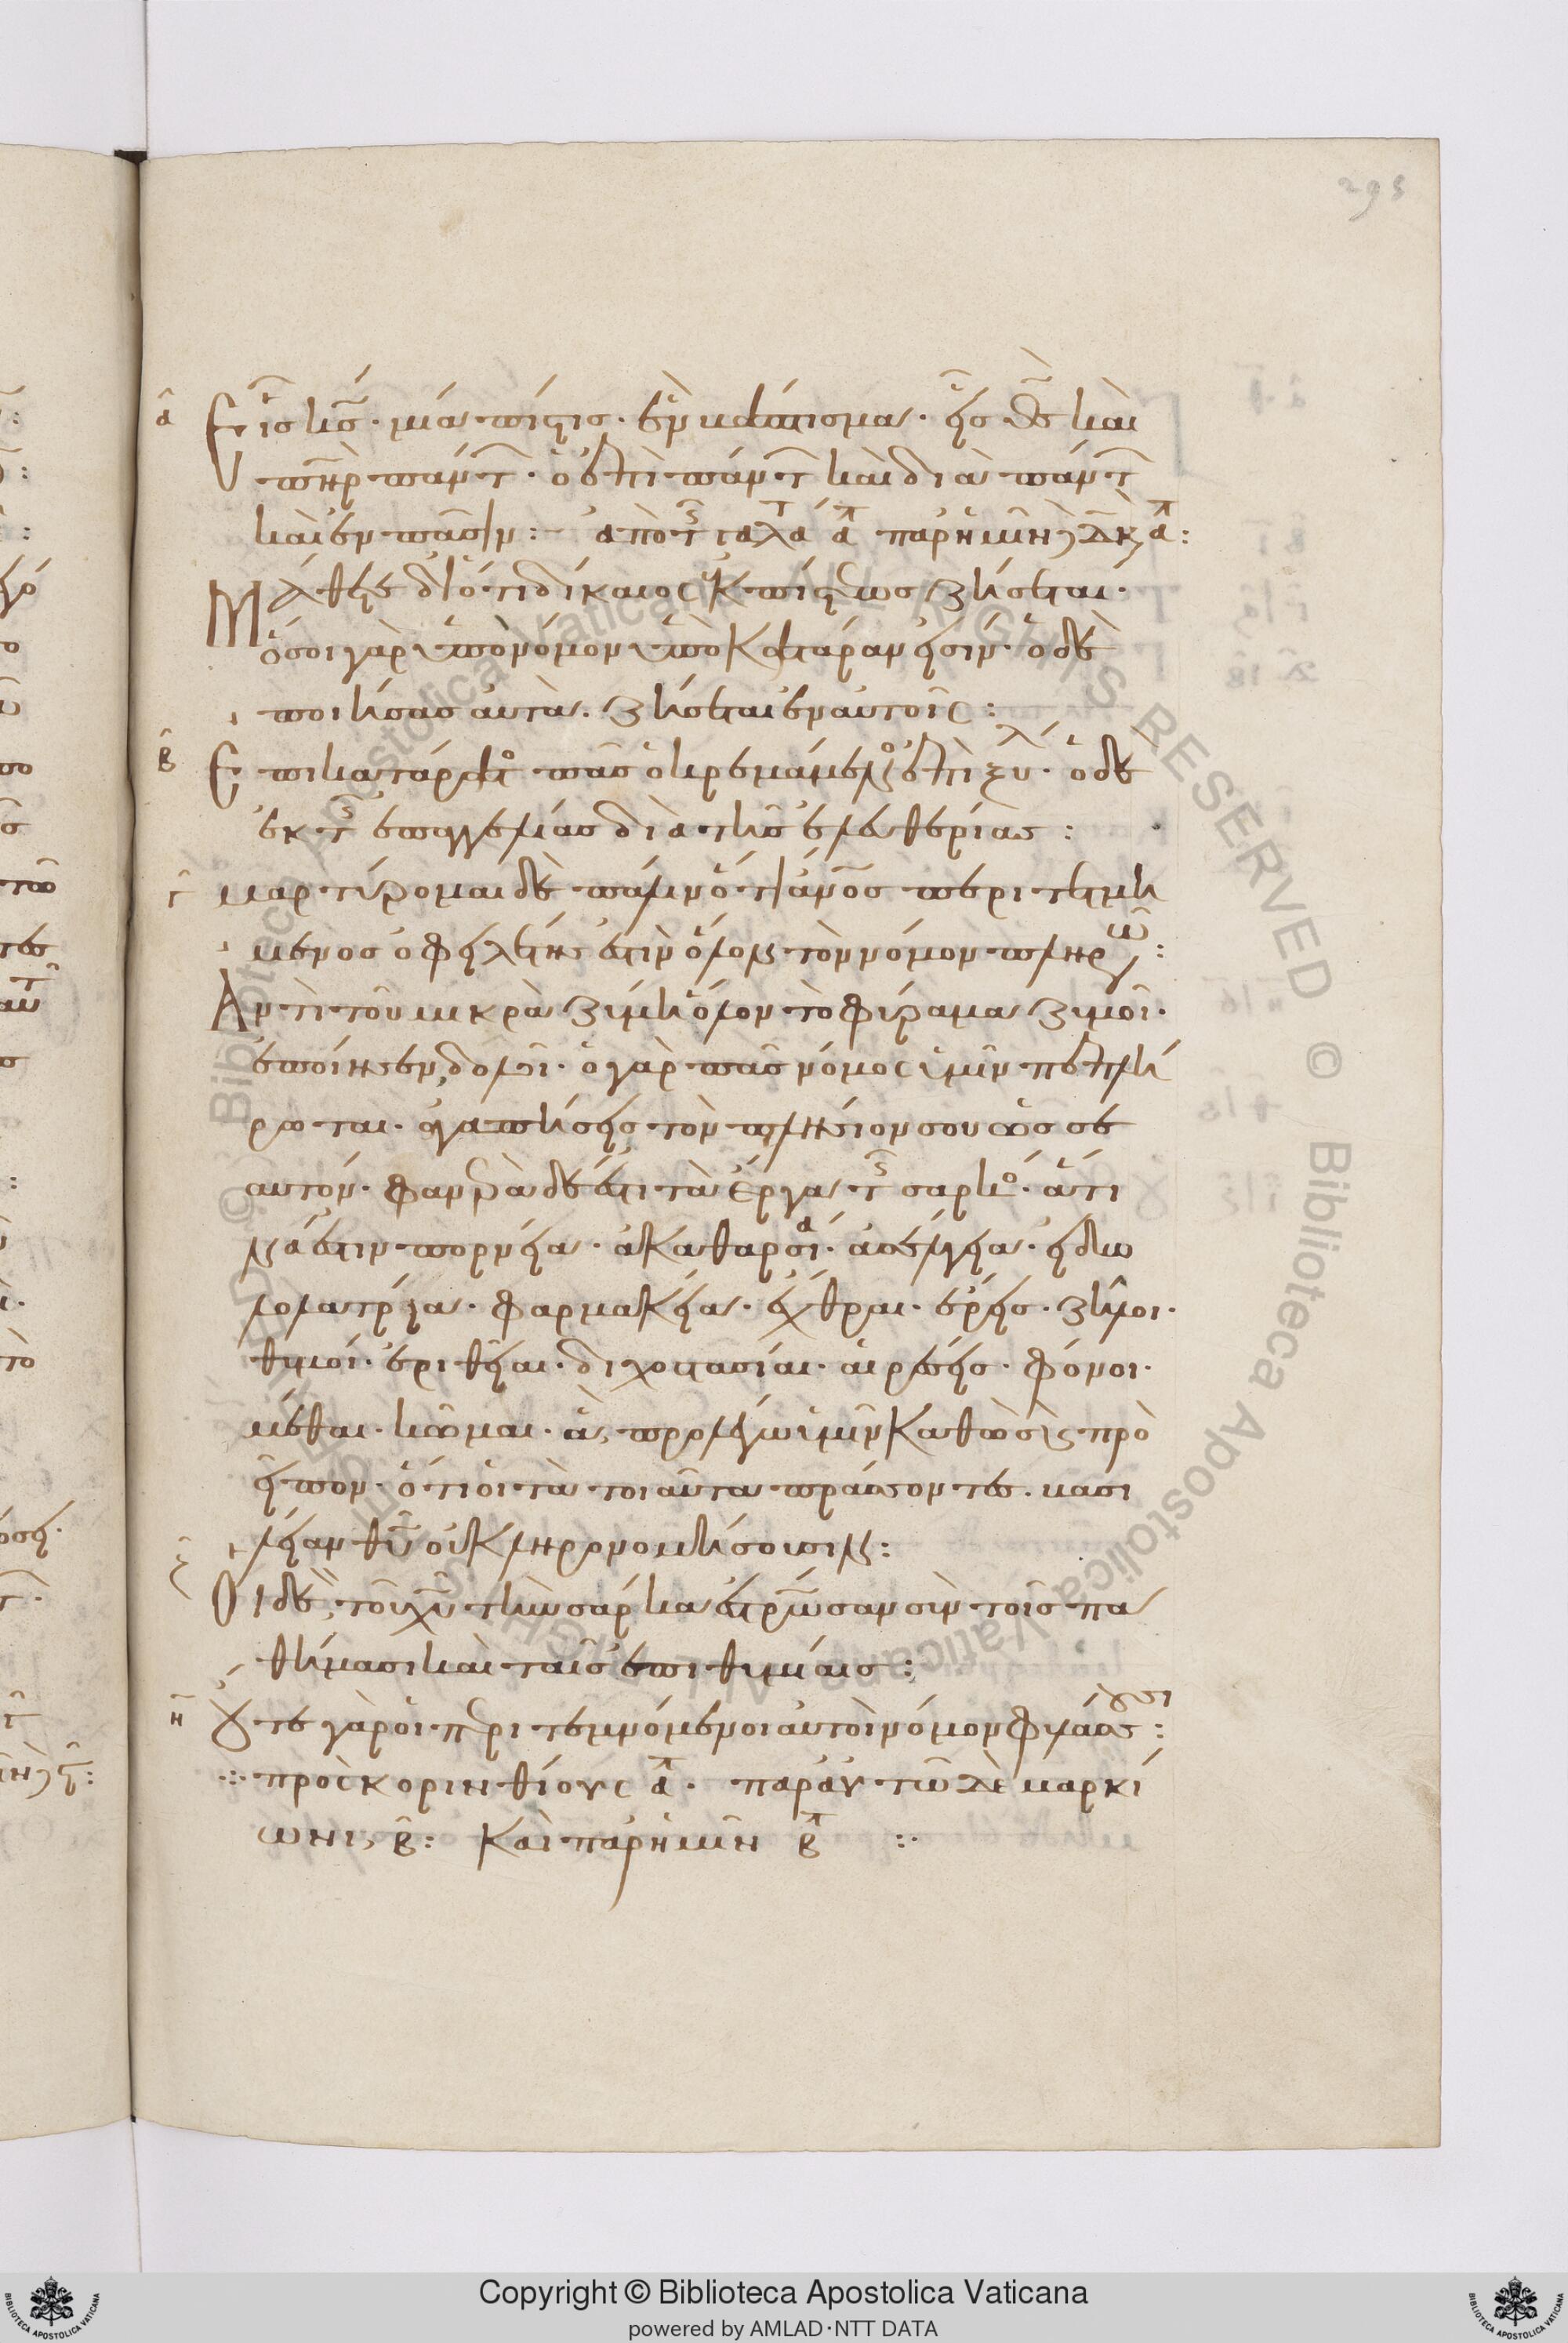 295
α Εἷς κς̄· μία πίστις· ἓν βάπτισμα· εἷς θς̄ καὶ
πη̄ρ πάντ· ὁ ἐπὶ πάντ καὶ διὰ πάντ
καὶ ἐν πᾶσιν: ἀπὸ τ γαλά α παρ ἡμῖν δὲ κ, δ:
Μάθετε διότι δίκαιος ἐκ πίστεως ζήσεται·
ὅσοι γὰρ ὑπὸ νόμον ὑπὸ κατάραν εἰσίν· ὁ δὲ
ποιήσας αὐτὰ· ζήσεται ἐν αὐτοῖς:
β Ἐπικατάρατο πᾶς ὁ κρεμάμενος ἐπὶ ξύλ· ὁ δὲ
ἐκ τ ἐπαγγελίας διὰ τῆς ἐλευθερίας:
γ μαρτύρομαι δὲ πάλιν ὅτι ἄνο̄ς περιτετμη
μένος ὀφειλέτης ἐστὶν ὅλον τὸν νόμον πληρῶ:
Ἀντὶ τοῦ μικρὰ ζύμη ὅλον τὸ φύραμα ζυμοῖ·
ἐποίησεν, δολοῖ· ὁ γὰρ πᾶς νόμος ὑμῖν πεπλή
ρωται· ἀγαπήσεις τὸν πλησίον σου ὡς σε
αυτόν· φανερὰ δέ ἐστι τὰ ἔργα τ σαρκὸ· ἅτι
νά ἐστιν πορνεία· ἀκαθαρσία· ἀσέλγεια· εἰδω
λολατρεία· φαρμακεία· ἔχθραι· ἔρεις· ζῆλοι·
θυμοί· ἐριθεῖαι· διχοστασίαι· αἱρέσεις· φθόνοι·
μέθαι· κῶμαι· ἃ προλέγω ὑμῖν καθὼς καὶ προ
εῖπον· ὅτι οἱ τὰ τοιαῦτα πράσσοντες· βασι
λείαν θῦ οὐ κληρονομήσουσιν:
ζ Οἱ δὲ τοῦ χῦ τὴν σάρκα ἐσταύρωσαν σὺν τοῖς πα
θήμασι καὶ ταῖς ἐπιθυμίαις:
η οὔτε γὰρ οἱ περιτεμνόμενοι αὐτοὶ νόμον φυλάσσουσι:
∴ πρὸς κορινθίους α. παρ αὐτῶ δὲ μαρκί
ωνι, β: καὶ παρ ἡμῖν β ∴
Copyright © Biblioteca Apostolica Vaticana
powered by AMLAD·NTT DATA